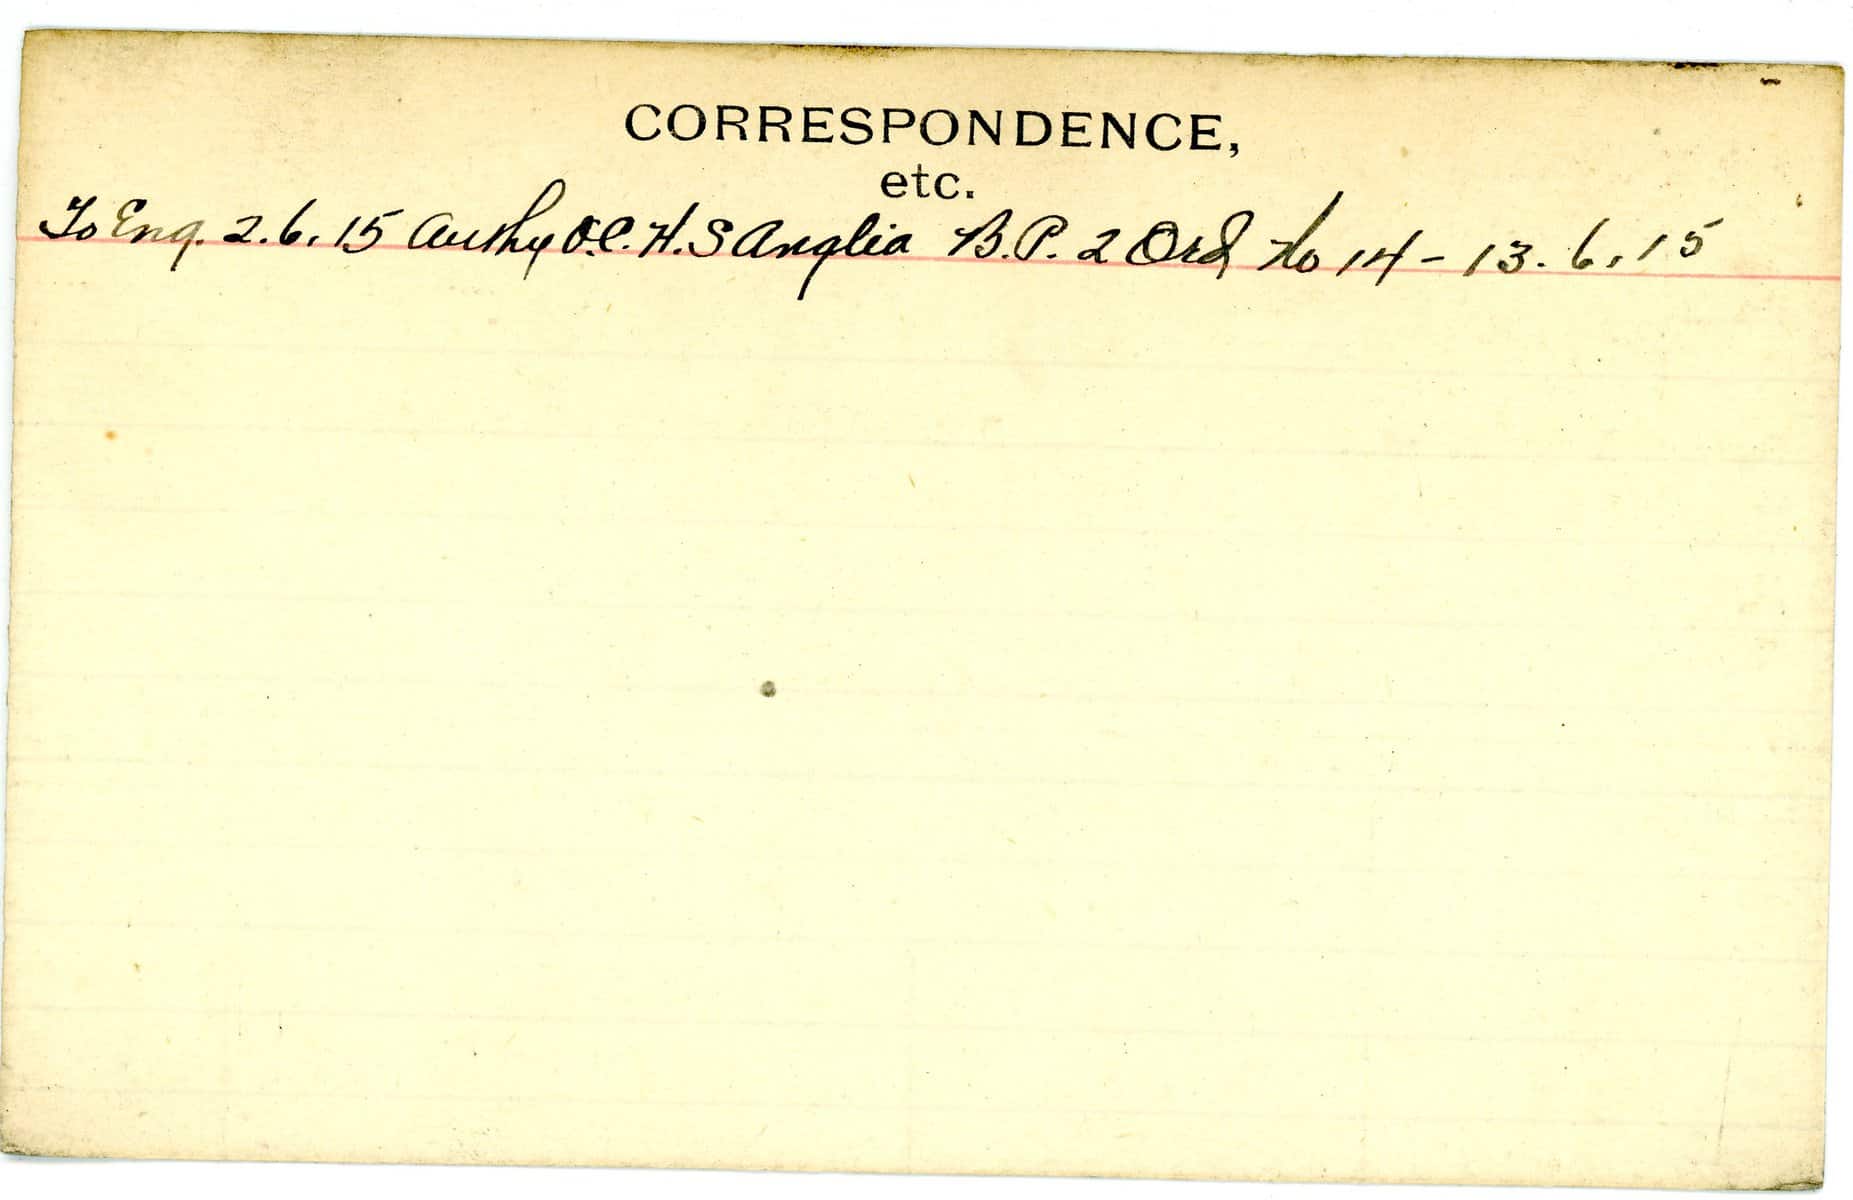 CORRESPONDENCE,
etc.
To Eng. 2.6.15 Authy O.C. H.S Anglia B.P. 2 Ord No 14 - 13.6.15